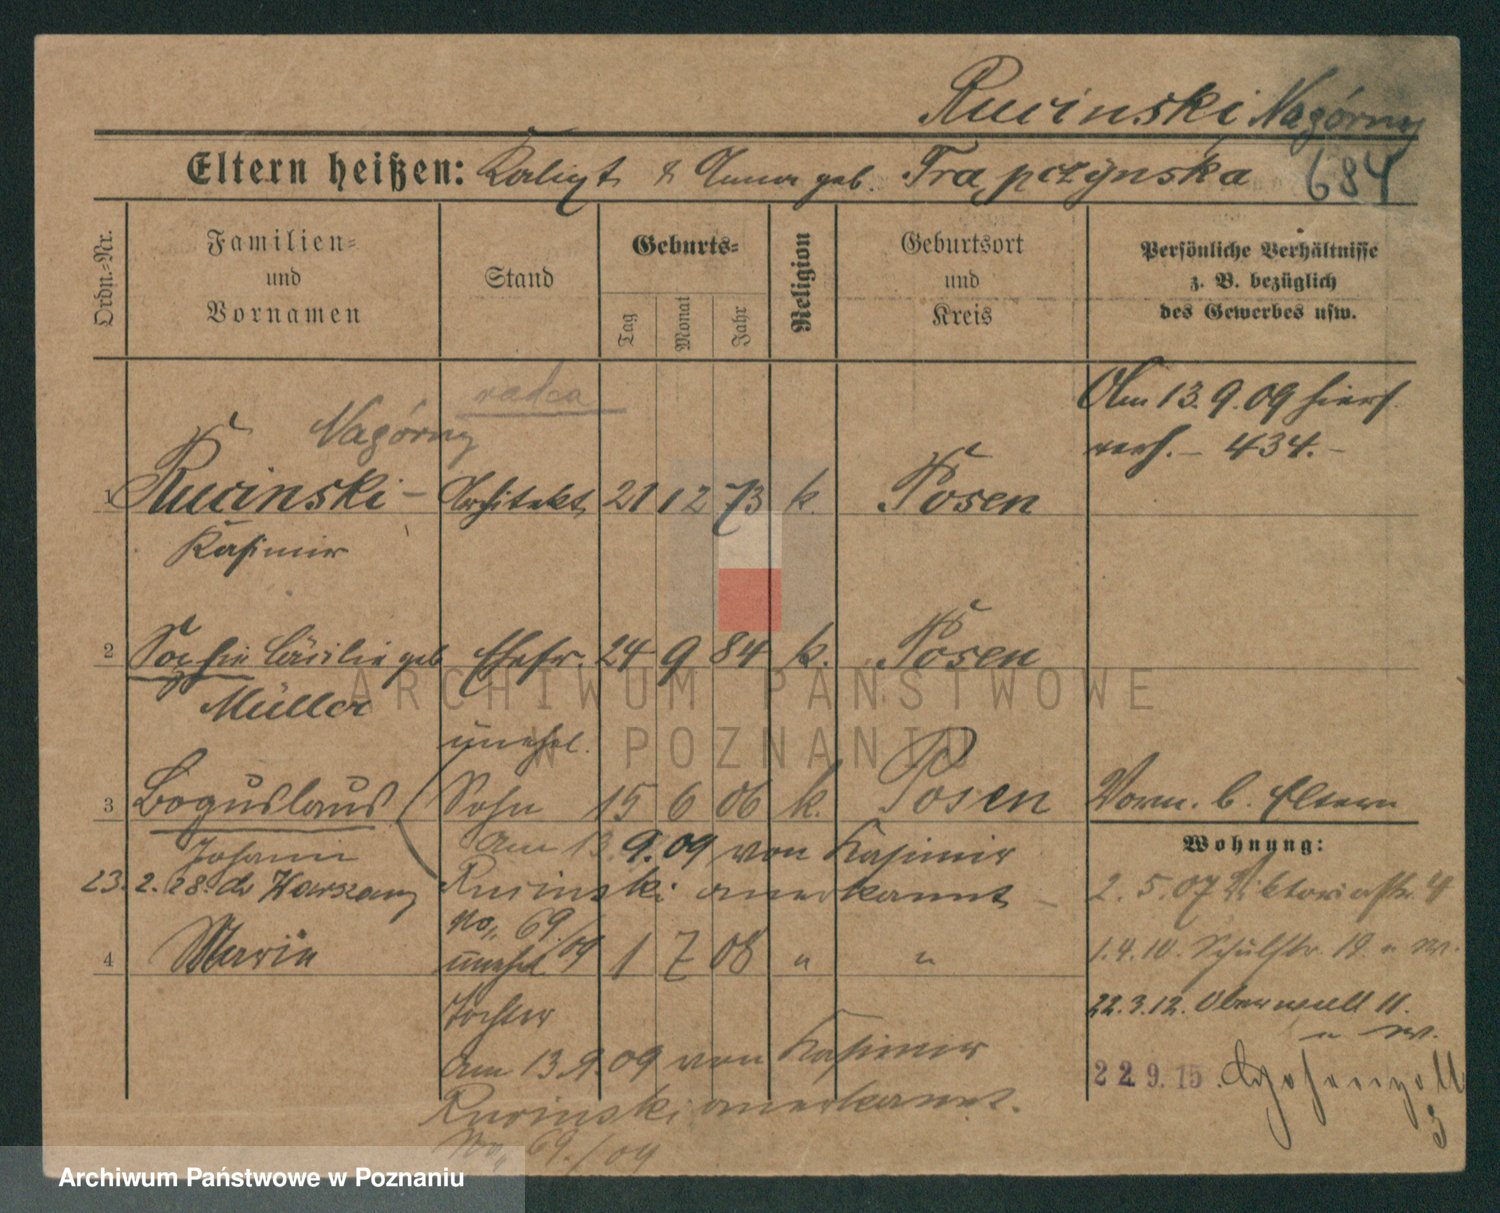 Rucinski Nagórny
684
Eltern heißen: Kalixt & Anna geb. Trąpczynska
Ordn.=Nr.
Familien= und Vornamen
Stand
Geburts=
Tag
Monat
Jahr
Religion
Geburtsort und Kreis
Persönliche Verhältnisse z. B. bezüglich des Gewerbes usw.
radca
Nagórny
Am 13.9.09 hiers.
verh. – 434. –
1 Rucinski – Architekt 21 12 73 k. Posen
Kasimir
2 Sophie Cäcilie geb Ehefr. 24 9 84 k. Posen
Müller
unehel.
3 Boguslaus Sohn 15 6 06 k. Posen Vorm. b. Eltern
Johann
Am 13.9.09 von Kasimir
Wohnung:
23.2.28. do Warszawy
Rucinski anerkannt –
2.5.07 Viktoriastr. 4
No 69/09
4 Maria unehel 1 7 08 " "
1.4.10. Schulstr. 19. u w.
Tochter
22.3.12. Oberwall 11.
u w.
Am 13.9.09 von Kasimir
22.9.15. Hohenzoll
3
Rucinski anerkannt.
No 69./09
ARCHIWUM PAŃSTWOWE
W POZNANIU
Archiwum Państwowe w Poznaniu